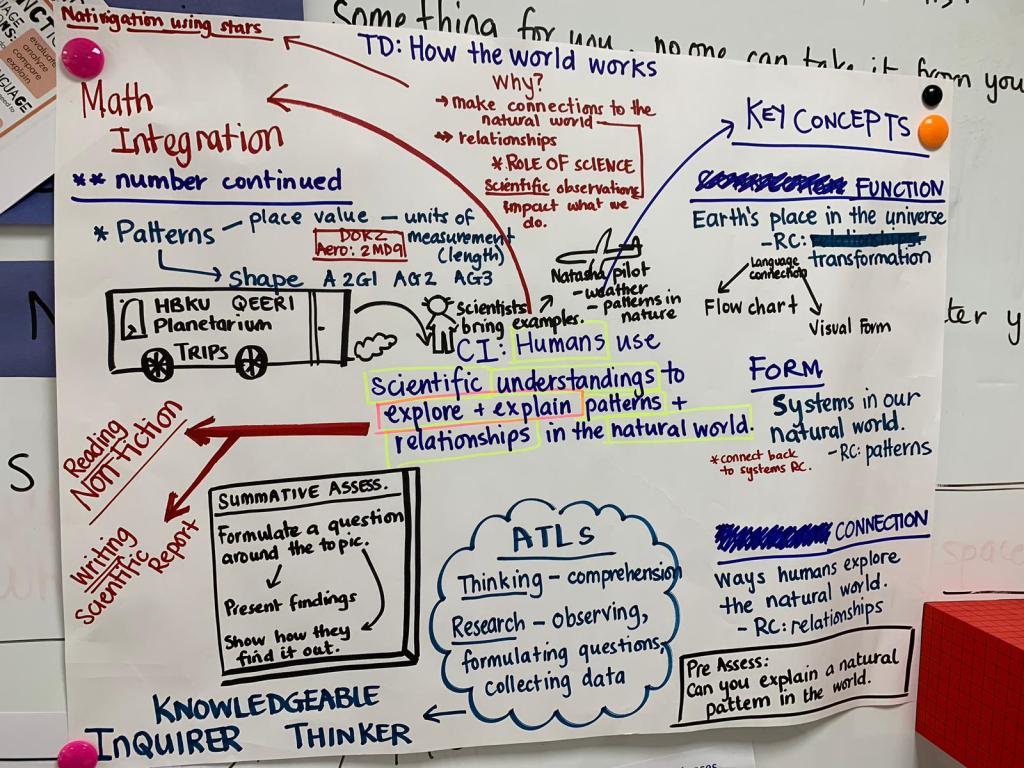 Something for you, no one can take it from you
NCT
evaluate
analyze
compare
explain
Nativigation using stars
TD: How the world works
Why?
→ make connections to the
natural world
→ relationships
* ROLE OF SCIENCE
Scientific observations
impact what we
do.
Math
Integration
** number continued
* Patterns – place value – units of
measurement
(length)
DOK2
Aero: 2MD9
Shape A2G1 AG2 AG3
HBKU QEERI
Planetarium
TRIPS
Scientists
bring examples.
Natasha pilot
- weather
- patterns in
nature
CI: Humans use
scientific understandings to
explore + explain patterns +
relationships in the natural world.
KEY CONCEPTS
FUNCTION
Earth's place in the universe
- RC: relationships
transformation
Language
connection
Flow chart
Visual Form
FORM
Systems in our
natural world.
- RC: patterns
*connect back
to systems RC.
CONNECTION
Ways humans explore
the natural world.
- RC: relationships
Pre Assess:
Can you explain a natural
pattern in the world.
Reading
NON FICTION
Writing
Scientific
Report
SUMMATIVE ASSESS.
Formulate a question
around the topic.
Present findings
Show how they
find it out.
ATLS
Thinking – comprehension
Research – observing,
formulating questions,
collecting data
KNOWLEDGEABLE
INQUIRER THINKER